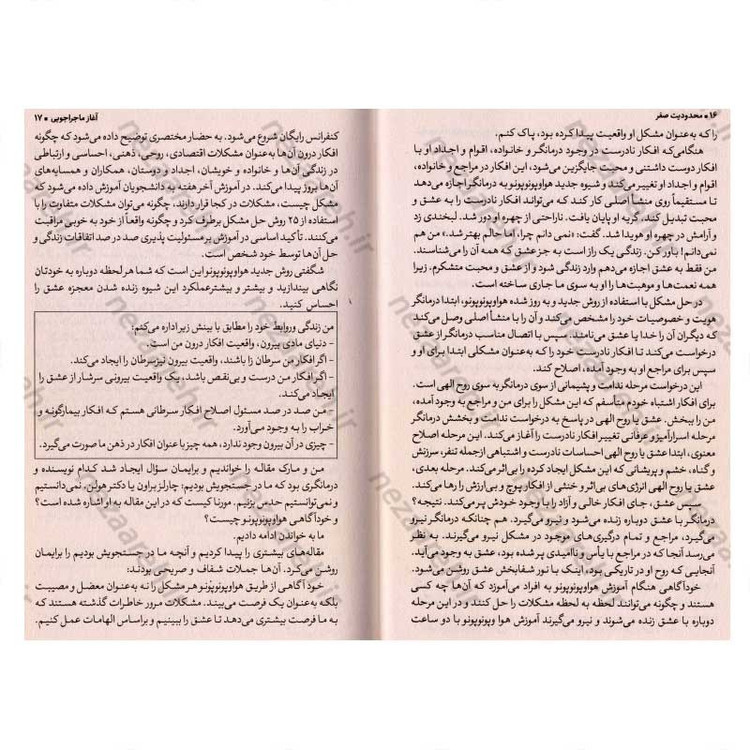 ۱۶ • محدودیت صفر
را که به‌عنوان مشکل او واقعیت پیدا کرده بود، پاک کنم.
هنگامی‌که افکار نادرست در وجود درمانگر و خانواده، اقوام و اجداد او با
افکار دوست داشتنی و محبت جایگزین می‌شود، این افکار در مراجع و خانواده،
اقوام و اجداد او تغییر می‌کند و شیوه جدید هواوپونوپونو به درمانگر اجازه می‌دهد
تا مستقیماً روی منشأ اصلی کار کند که می‌تواند افکار نادرست را به عشق و
محبت تبدیل کند. گریه او پایان یافت. ناراحتی از چهره او دور شد. لبخندی زد
و آرامش در چهره او هویدا شد. گفت: «نمی دانم چرا، اما حالم بهتر شد.» من هم
نمی‌دانم! باور کن. زندگی یک راز است به جز عشق که همه آن را می‌شناسند.
من فقط به عشق اجازه می‌دهم وارد زندگی شود و از عشق و محبت متشکرم. زیرا
همه نعمت‌ها و موهبت‌ها را او به سوی ما جاری ساخته است.
در حل مشکل با استفاده از روش جدید و به روز شده هواوپونوپونو، ابتدا درمانگر
هویت و خصوصیات خود را مشخص می‌کند و آن را با منشأ اصلی وصل می‌کند
که دیگران آن را خدا یا عشق می‌نامند. سپس با اتصال مناسب درمانگر از عشق
درخواست می‌کند تا افکار نادرست خود را که به‌عنوان مشکلی ابتدا برای او و
سپس برای مراجع او به وجود آمده، اصلاح کند.
این درخواست مرحله ندامت و پشیمانی از سوی درمانگر به سوی روح الهی است.
برای افکار اشتباه خودم متأسفم که این مشکل را برای من و مراجع به وجود آمده،
من را ببخش. عشق یا روح الهی در پاسخ به درخواست ندامت و بخشش درمانگر
مرحله اسرارآمیز و عرفانی تغییر افکار نادرست را آغاز می‌کند. این مرحله اصلاح
معنوی، ابتدا عشق یا روح الهی احساسات نادرست و اشتباهی از جمله تنفر، سرزنش
و گناه، خشم و پریشانی که این مشکل ایجاد کرده را بی‌اثر می‌کند. مرحله بعدی،
عشق یا روح الهی انرژی‌های بی‌اثر و خنثی از افکار پوچ و بی‌ارزش را رها می‌کند.
سپس عشق، جای افکار خالی و آزاد را با وجود خودش پر می‌کند. نتیجه؟
درمانگر با عشق دوباره زنده می‌شود و نیرو می‌گیرد. هم چنانکه درمانگر نیرو
می‌گیرد، مراجع و تمام درگیری‌های موجود در مشکل نیرو می‌گیرند. به نظر
می‌رسد آنجا که در مراجع با یأس و ناامیدی پر شده بود، عشق به وجود می‌آید.
آنجایی که روح او در تاریکی بود، اینک با نور شفابخش عشق روشن می‌شود.
خودآگاهی هنگام آموزش هواوپونوپونو به افراد می‌آموزد که آن‌ها چه کسی
هستند و چگونه می‌توانند لحظه به لحظه مشکلات را حل کنند و در این مرحله
دوباره با عشق زنده می‌شوند و نیرو می‌گیرند آموزش هوا وپونوپونو با دو ساعت
آغاز ماجراجویی • ۱۷
کنفرانس رایگان شروع می‌شود. به حضار مختصری توضیح داده می‌شود که چگونه
افکار درون آن‌ها به‌عنوان مشکلات اقتصادی، روحی، ذهنی، احساسی و ارتباطی
در زندگی آن‌ها و خانواده و خویشان، اجداد و دوستان، همکاران و همسایه‌های
آن‌ها بروز پیدا می‌کند. در آموزش آخر هفته به دانشجویان آموزش داده می‌شود که
مشکل چیست، مشکلات در کجا قرار دارند، چگونه می‌توان مشکلات متفاوت را با
استفاده از ۲۵ روش حل مشکل برطرف کرد و چگونه واقعاً از خود به خوبی مراقبت
می‌کنند. تأکید اساسی در آموزش بر مسئولیت پذیری صد در صد اتفاقات زندگی و
حل آن‌ها توسط خود شخص است.
شگفتی روش جدید هواوپونوپونو این است که شما هر لحظه دوباره به خودتان
نگاهی بیندازید و بیشتر و بیشتر عملکرد این شیوه زنده شدن معجزه عشق را
احساس کنید.
من زندگی و روابط خود را مطابق با بینش زیر اداره می‌کنم:
- دنیای مادی بیرون، واقعیت افکار درون من است.
- اگر افکار من سرطان زا باشند، واقعیت بیرون نیز سرطان را ایجاد می‌کند.
- اگر افکار من درست و بی‌نقص باشد، یک واقعیت بیرونی سرشار از عشق را
ایجاد می‌کند.
- من صد در صد مسئول اصلاح افکار سرطانی هستم که افکار بیمارگونه و
خراب را به وجود می‌آورد.
- چیزی در آن بیرون وجود ندارد، همه چیز با عنوان افکار در ذهن ما صورت می‌گیرد.
من و مارک مقاله را خواندیم و برایمان سؤال ایجاد شد کدام نویسنده و
درمانگری بود که ما در جستجویش بودیم؛ چارلز براون یا دکتر هولن. نمی‌دانستیم
و نمی‌توانستیم حدس بزنیم. مورنا کیست که در این مقاله به او اشاره شده است؟
و خودآگاهی هواوپونوپونو چیست؟
ما به خواندن ادامه دادیم.
مقاله‌های بیشتری را پیدا کردیم و آنچه ما در جستجویش بودیم را برایمان
روشن می‌کرد. آن‌ها جملات شفاف و صریحی بودند:
خودآگاهی از طریق هواوپونوپونو هر مشکل را نه به‌عنوان معضل و مصیبت
بلکه به‌عنوان یک فرصت می‌بیند. مشکلات مرور خاطرات گذشته هستند که
به ما فرصت بیشتری می‌دهد تا عشق را ببینیم و براساس الهامات عمل کنیم.
nezaareh.ir